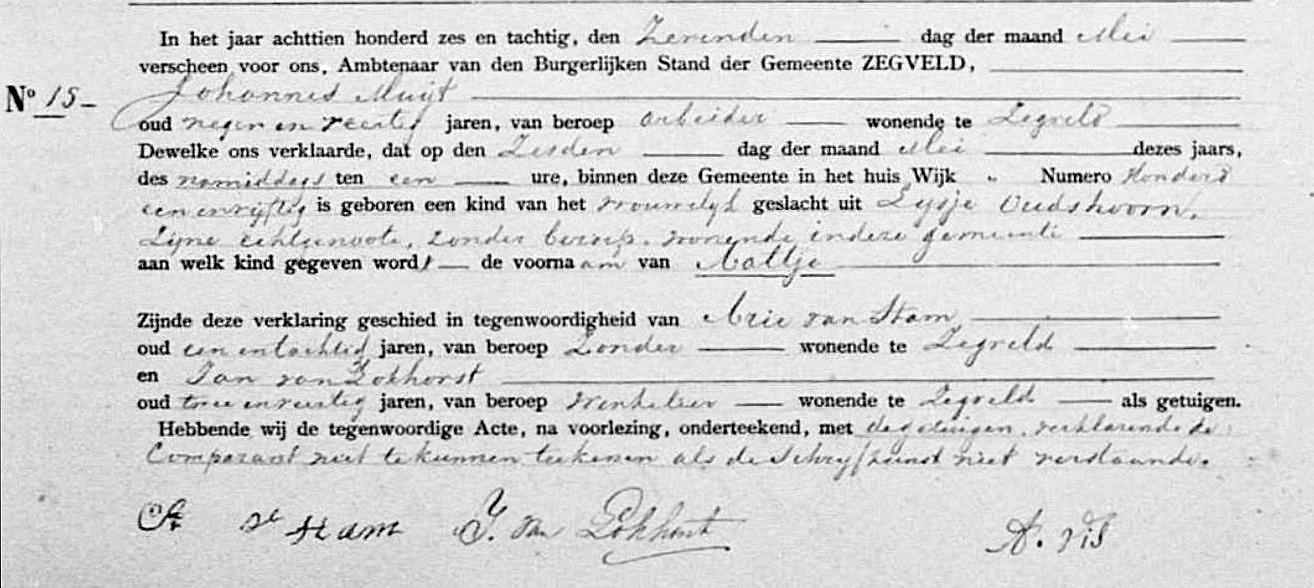 In het jaar achttien honderd zes en tachtig, den Zevenden dag der maand Mei
verscheen voor ons, Ambtenaar van den Burgerlijken Stand der Gemeente ZEGVELD,
Nº 15 Johannes Muijt
oud negen en veertig jaren, van beroep arbeider wonende te Zegveld
Dewelke ons verklaarde, dat op den Zesden dag der maand Mei dezes jaars,
des namiddags ten een ure, binnen deze Gemeente in het huis Wijk „ Numero Honderd
een en vijftig is geboren een kind van het vrouwelijk geslacht uit Lijsje Oudshoorn,
Zijne echtgenoote, zonder beroep, wonende in deze gemeente
aan welk kind gegeven wordt de voornaam van Aaltje
Zijnde deze verklaring geschied in tegenwoordigheid van Arie van Stam
oud een en tachtig jaren, van beroep Zonder wonende te Zegveld
en Jan van Lokhorst
oud twee en veertig jaren, van beroep Winkelier wonende te Zegveld als getuigen.
Hebbende wij de tegenwoordige Acte, na voorlezing, onderteekend, met de getuigen, verklarende de
Comparant niet te kunnen teekenen als de Schrijfkunst niet verstaande.
st Ham J. van Lokhorst A. Vis